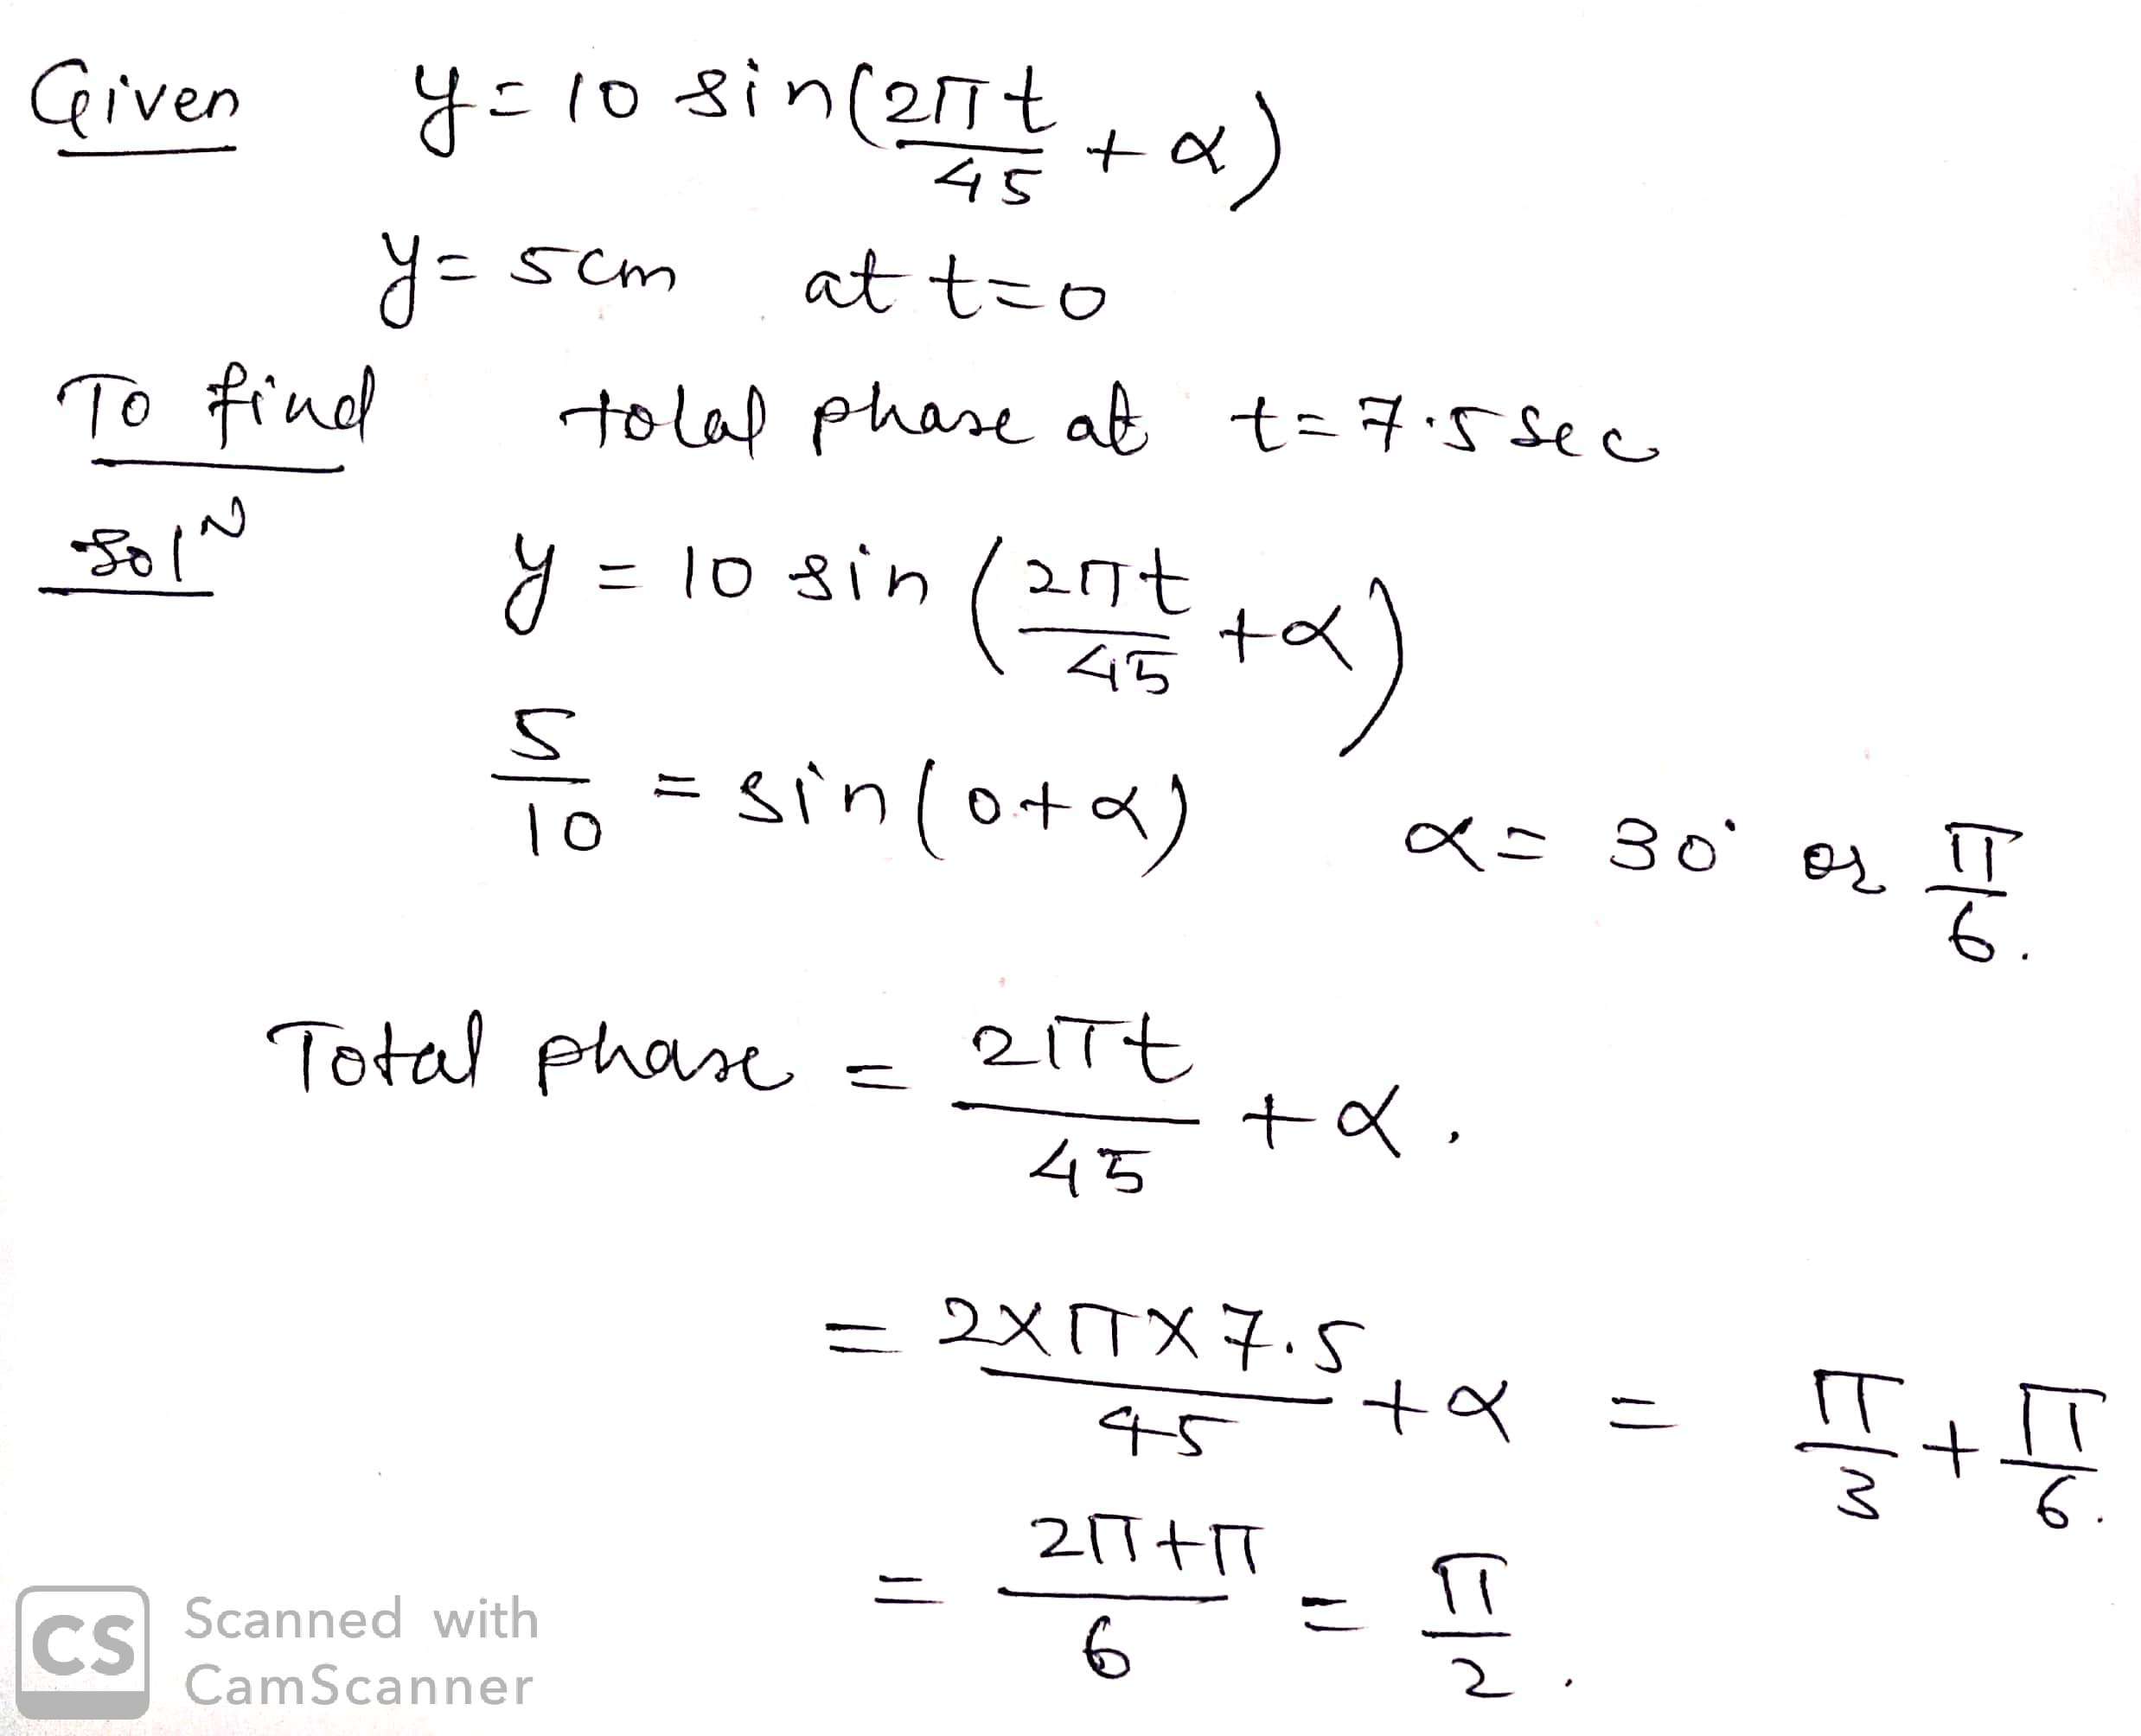 Given y = 10 sin(2πt/45 + α)
y = 5cm at t=0
To find total phase at t = 7.5 sec
solᴺ y = 10 sin (2πt/45 + α)
5/10 = sin(0+α) α = 30° or π/6.
Total phase = 2πt/45 + α.
= 2×π×7.5/45 + α = π/3 + π/6.
= 2π+π/6 = π/2.
CS Scanned with
CamScanner